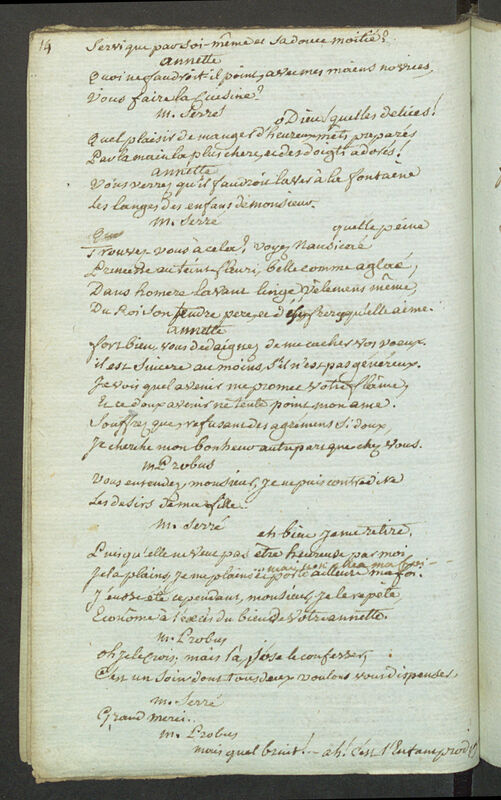 14
Servi que par soi-même et sa douce moitié?
annette
Quoi ne faudroit il point, avec mes mains novices,
Vous faire la Cuisine?
m. Serré
o Dieu! quelles delices!
Quel plaisir de manger d'heureux mets preparés
Par la main la plus chere, et des doigts adorés!
annette
Vous verrés qu'il faudroit laver à la fontaene
Les langes des enfans de monsieur.
m. Serré
quelle peine
Trouvez-vous a cela? voyez Nausicaé
Princesse au teint fleuri, belle comme aglaé,
Dans homere lavant linge, vêtemens même,
Du Roi son tendre pere, et des freres qu'elle aime.
annette
fort bien, vous dedaignez de me cacher vos voeux.
il est Sincere au moins S'il n'est pas généreux.
Je vois quel avenir me promet votre flâme,
Et ce doux avenir ne tente point mon ame.
Souffrez que, refusant des agremens si doux,
Je cherche mon bonheur autre part que chez vous.
m. Probus
Vous entendez, monsieur, Je ne puis contredire
Les desirs de ma fille.
m. Serré
eh bien Je me retire.
Puisqu'elle ne veut pas être heureuse par moi
Je la plains, Je me plains et porte ailleurs ma foi.
J'eusse été cependant, monsieur, Je le repete,
Econôme à l'excès du bien de votre annette.
m. Probus
oh Je le crois, mais là, J'ose le confesser,
C'est un Soin dont tous deux voulons vous dispenser.
m. Serré
Grand merci.
m. Probus
mais quel bruit! - ah! c'est l'Enfant prodi